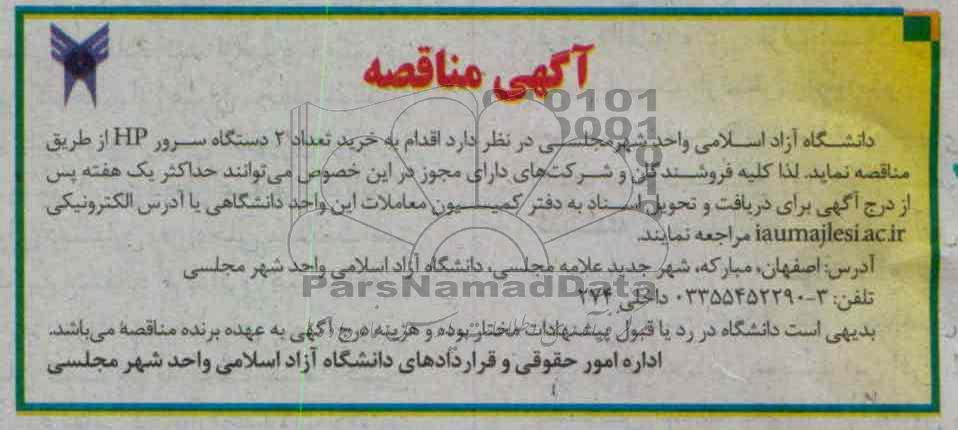 آگهی مناقصه
دانشگاه آزاد اسلامی واحد شهرمجلسی در نظر دارد اقدام به خرید تعداد ۲ دستگاه سرور HP از طریق
مناقصه نماید. لذا کلیه فروشندگان و شرکت‌های دارای مجوز در این خصوص می‌توانند حداکثر یک هفته پس
از درج آگهی برای دریافت و تحویل اسناد به دفتر کمیسیون معاملات این واحد دانشگاهی یا آدرس الکترونیکی
iaumajlesi.ac.ir مراجعه نمایند.
آدرس: اصفهان، مبارکه، شهر جدید علامه مجلسی، دانشگاه آزاد اسلامی واحد شهر مجلسی
تلفن: ۳-۰۳۳۵۵۴۵۲۲۹۰ داخلی ۲۷۴
بدیهی است دانشگاه در رد یا قبول پیشنهادات مختار بوده و هزینه درج آگهی به عهده برنده مناقصه می‌باشد.
اداره امور حقوقی و قراردادهای دانشگاه آزاد اسلامی واحد شهر مجلسی
ParsNamadData